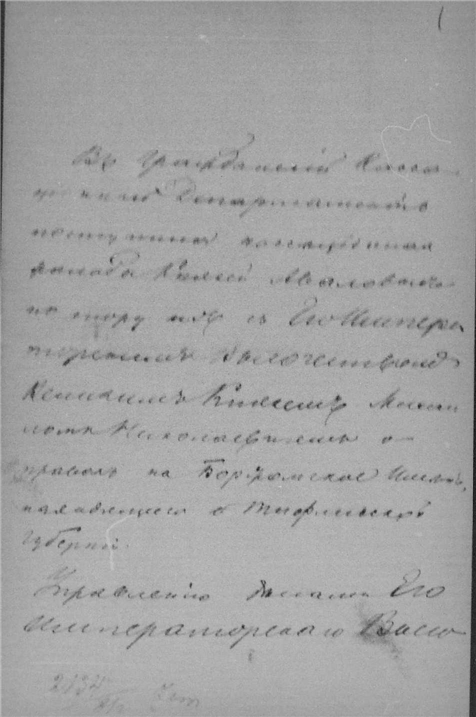 Въ Гражданскій Касса-
ціонный Департаментъ
поступила кассаціонная
жалоба Князей Аваловыхъ
по спору ихъ съ Его Импера-
торскимъ Высочествомъ
Великимъ Княземъ Михаи-
ломъ Николаевичемъ о
правахъ на Боржомское Имѣніе,
находящееся въ Тифлисской
губерніи.
Управленію дѣлами Его
Императорскаго Высо-